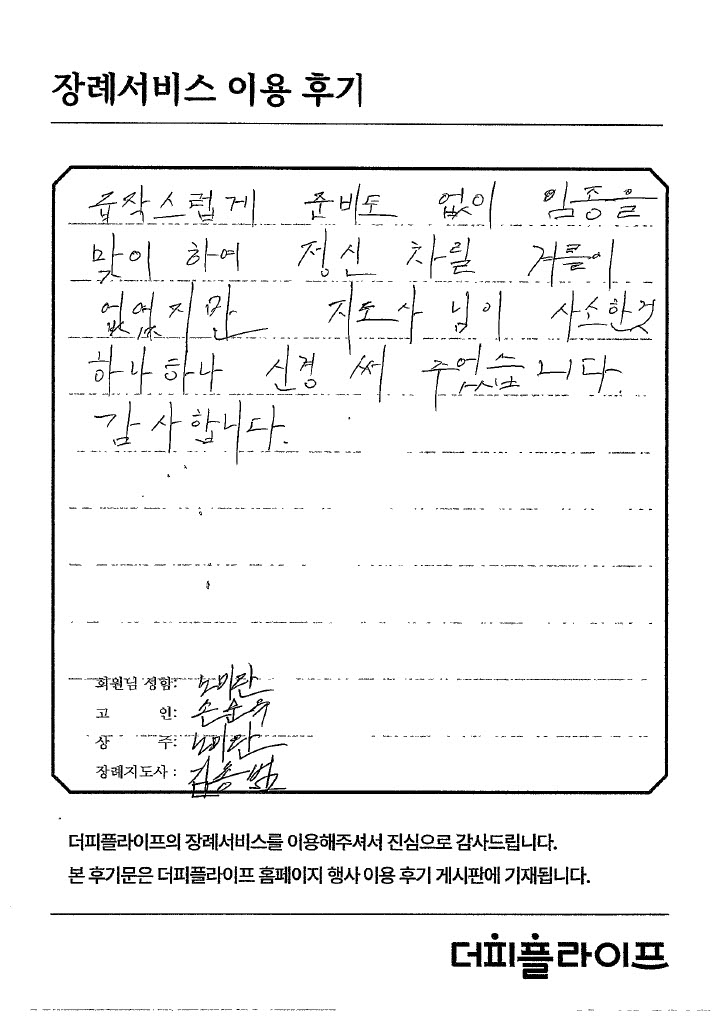 장례서비스 이용 후기
급작스럽게 준비도 없이 임종을
맞이 하여 정신 차릴 겨를이
없었지만 지도사 님이 사소한것
하나하나 신경 써 주었습니다.
감사합니다.
회원님 성함: 노미란
고 인: 손순우
상 주: 노미란
장례지도사 : 김종범
더피플라이프의 장례서비스를 이용해주셔서 진심으로 감사드립니다.
본 후기문은 더피플라이프 홈페이지 행사 이용 후기 게시판에 기재됩니다.
더피플라이프